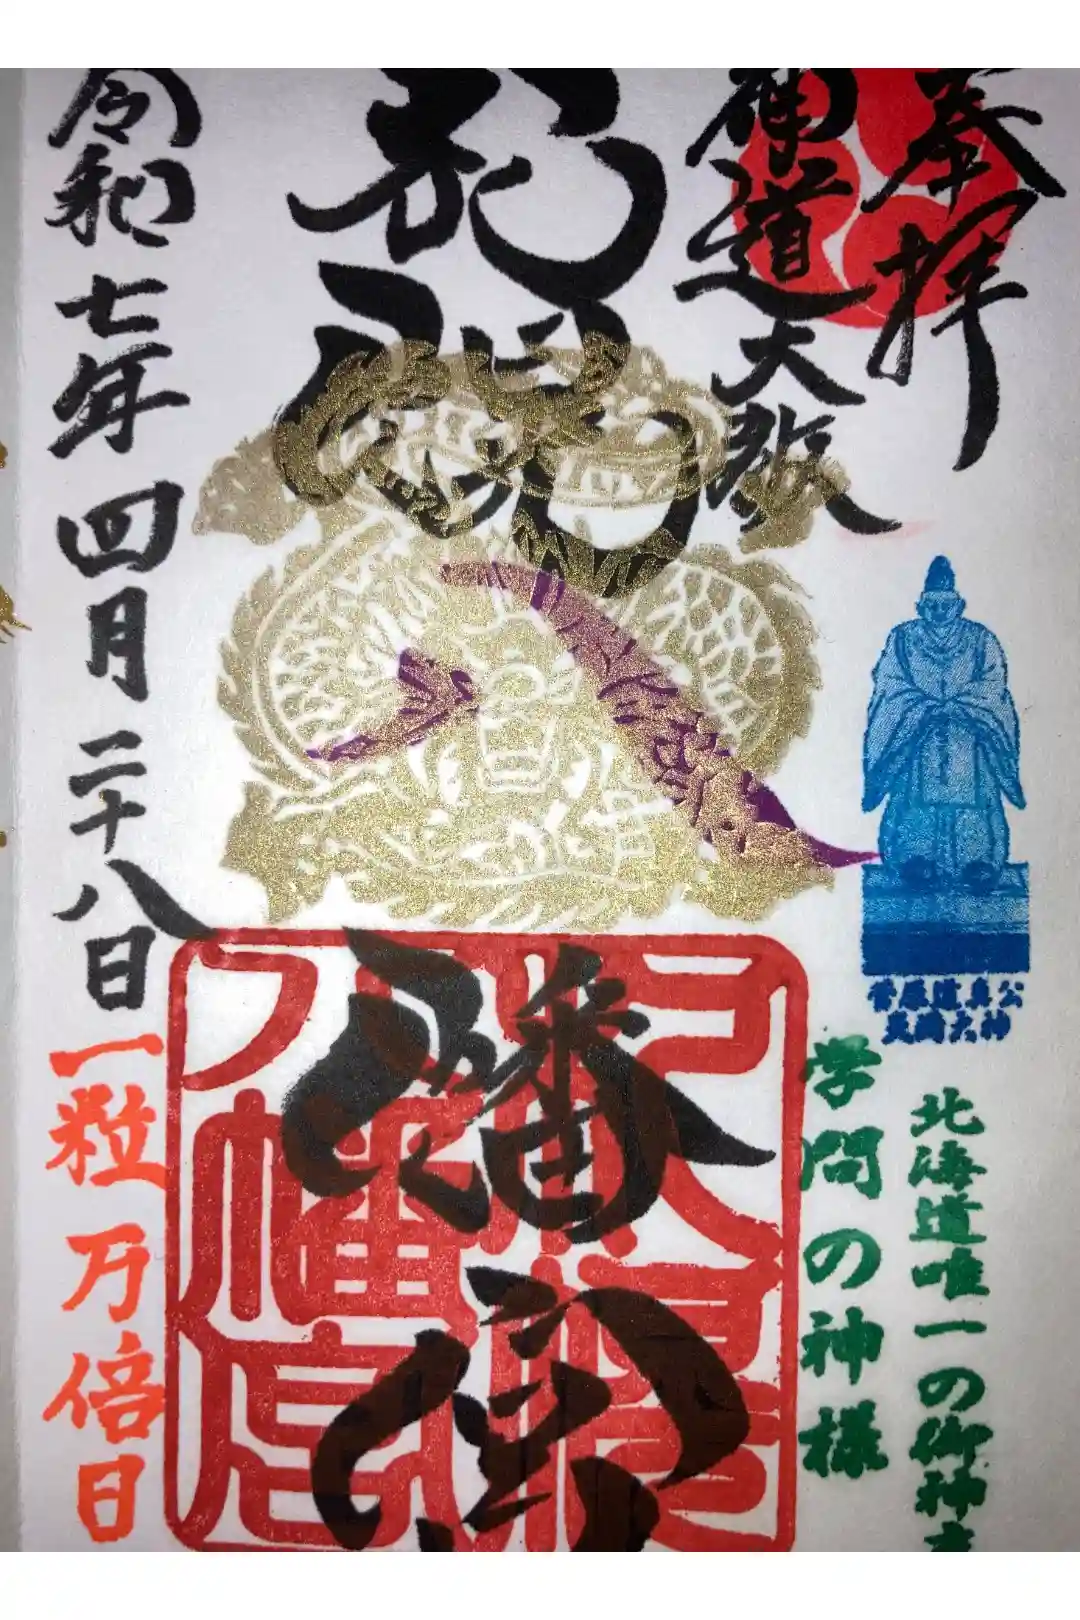 奉拝
神道大教
札幌八幡宮
令和七年四月二十八日
一粒万倍日
菅原道真公
天満大神
北海道唯一の御神
学問の神様